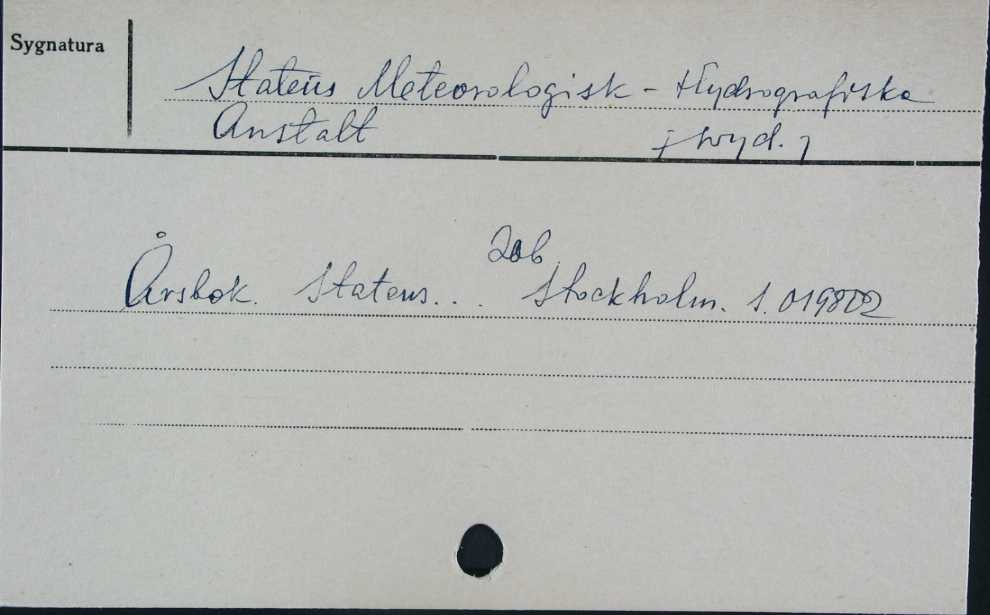 Sygnatura
Statens Meteorologisk - Hydrografiska
Anstalt [wyd.]
Zob.
Årsbok. Statens... Stockholm. S. 019802